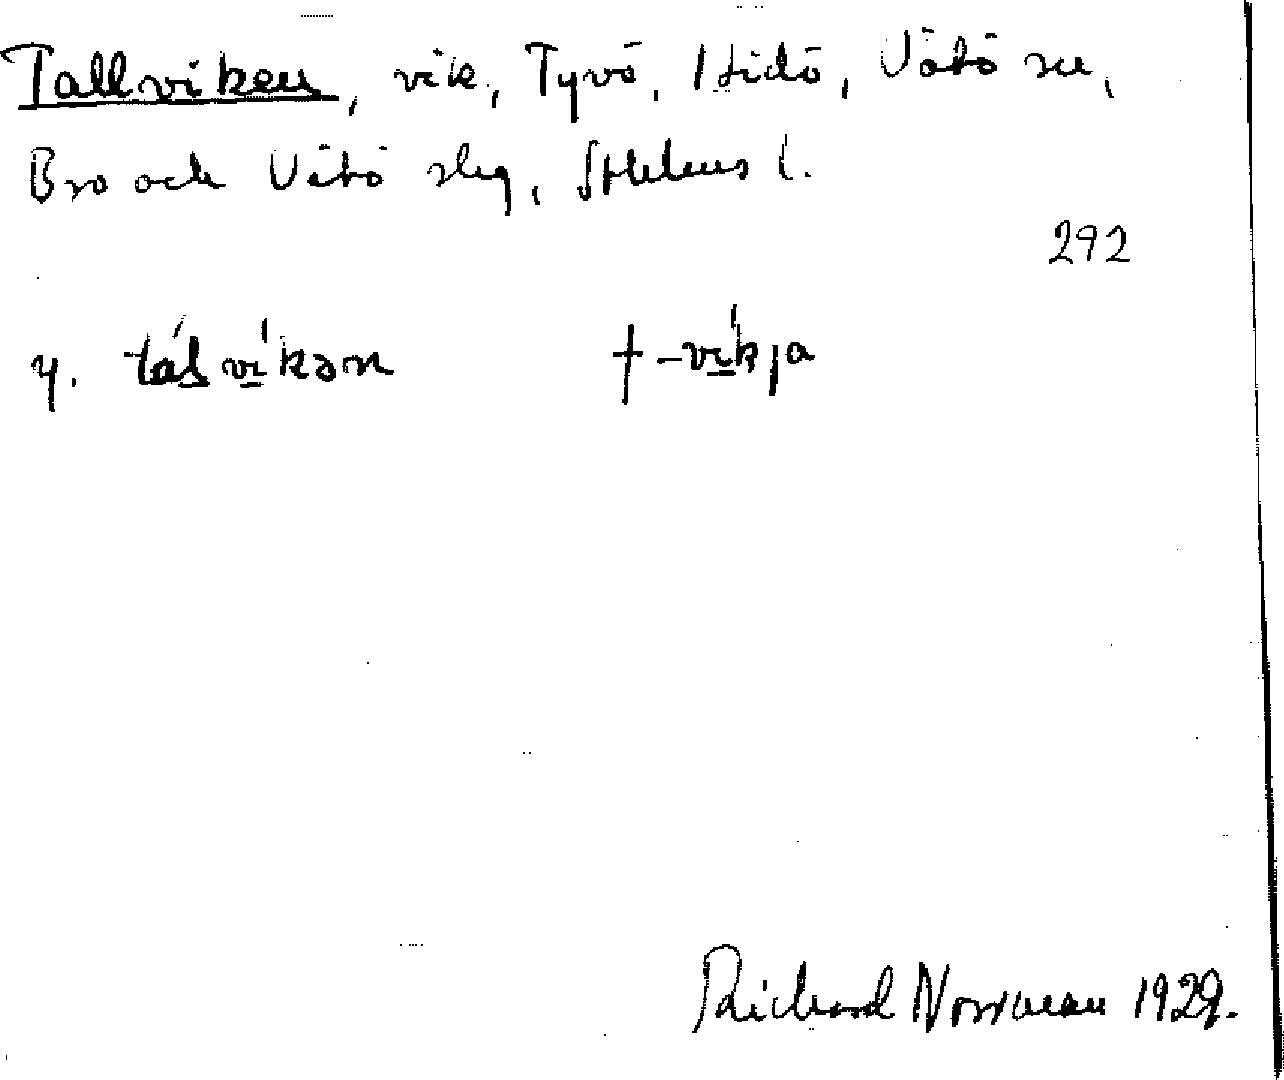 Tallviken, vik, Tyvö, Hidö, Vätö sn,
Bro och Vätö slg, Sthlms l.
292
y. tálvíkən † -víkja
Richard Norrman 1929.